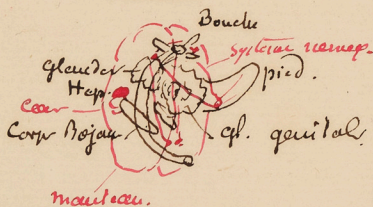 Bouche
système nerveux
Glandes
Hep.
pied.
coeur
Corps Bojan
gl. genital.
manteau.